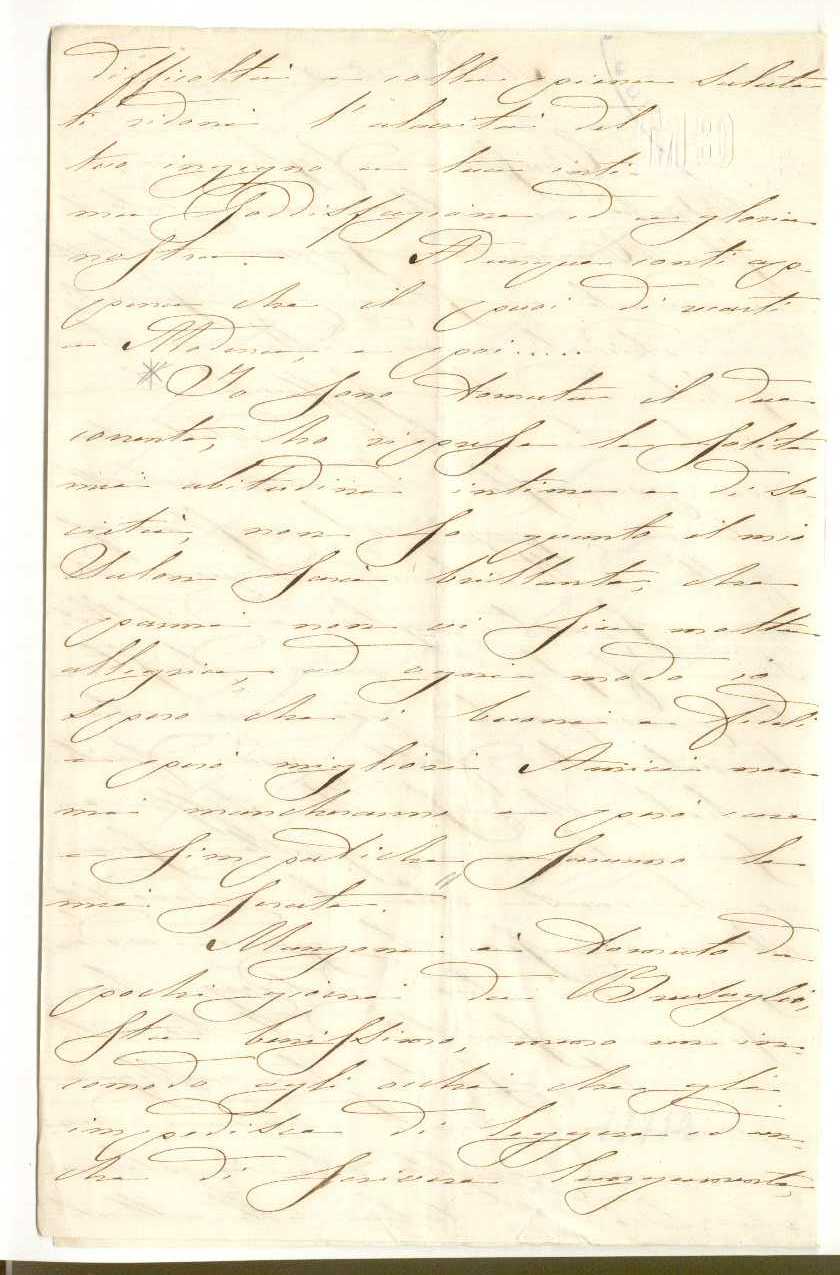 difficoltà e colla piena salute
ti ridoni l'alacrità del
tuo ingegno a tua inti-
ma soddisfazione ed a gloria
nostra. Adunque conti ap-
pena che il puoi di recarti
a Modena, e poi.....
* Io sono tornata il due
corrente, ho ripresa le solite
mie abitudini intime e di so-
cietà, non so quanto il mio
Salon sarà brillante, che
parmi non vi sia molta
allegria, ad ogni modo io
spero che i buoni e fidati
e però migliori Amici non
mi mancheranno e però care
e simpatiche saranno le
mie serate.
Manzoni è tornato da
pochi giorni da Brusuglio,
sta benissimo, meno un in-
comodo agli occhi che gli
impedisce di leggere ed an-
che di scrivere lungamente,